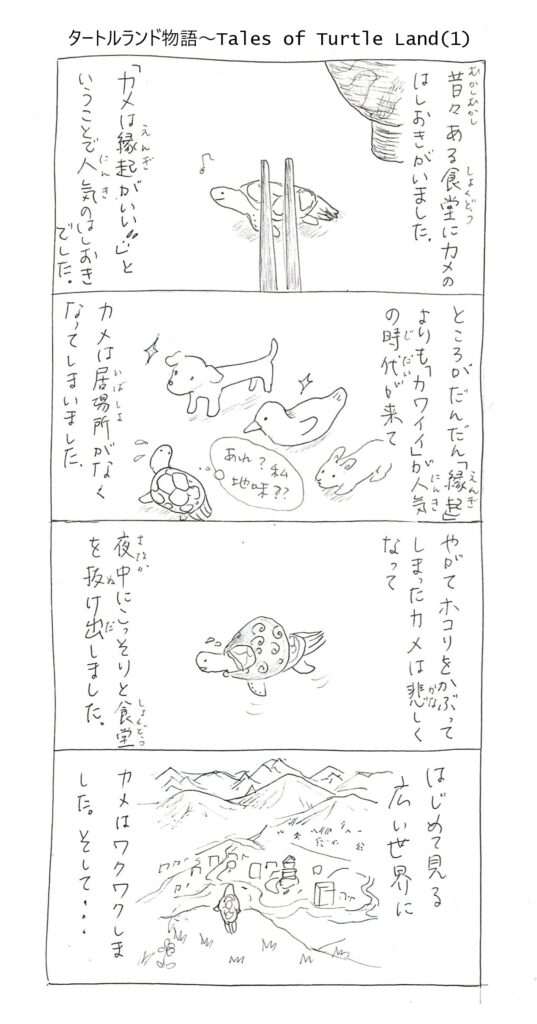 タートルランド物語～Tales of Turtle Land(1)
昔々ある食堂にカメの
むかしむかし
しょくどう
はしおきがいました。
「カメは縁起がいい」と
えんぎ
いうことで人気のはしおき
にんき
でした。
ところがだんだん「縁起」
えんぎ
よりも「カワイイ」が人気
にんき
の時代が来て
じだい
カメは居場所がなく
いばしょ
なってしまいました。
あれ？私
地味？？
やがてホコリをかぶって
しまったカメは悲しく
かな
なって
夜中にこっそりと食堂
しょくどう
を抜け出しました。
ぬ
だ
はじめて見る
広い世界に
カメはワクワクしま
した。そして・・・